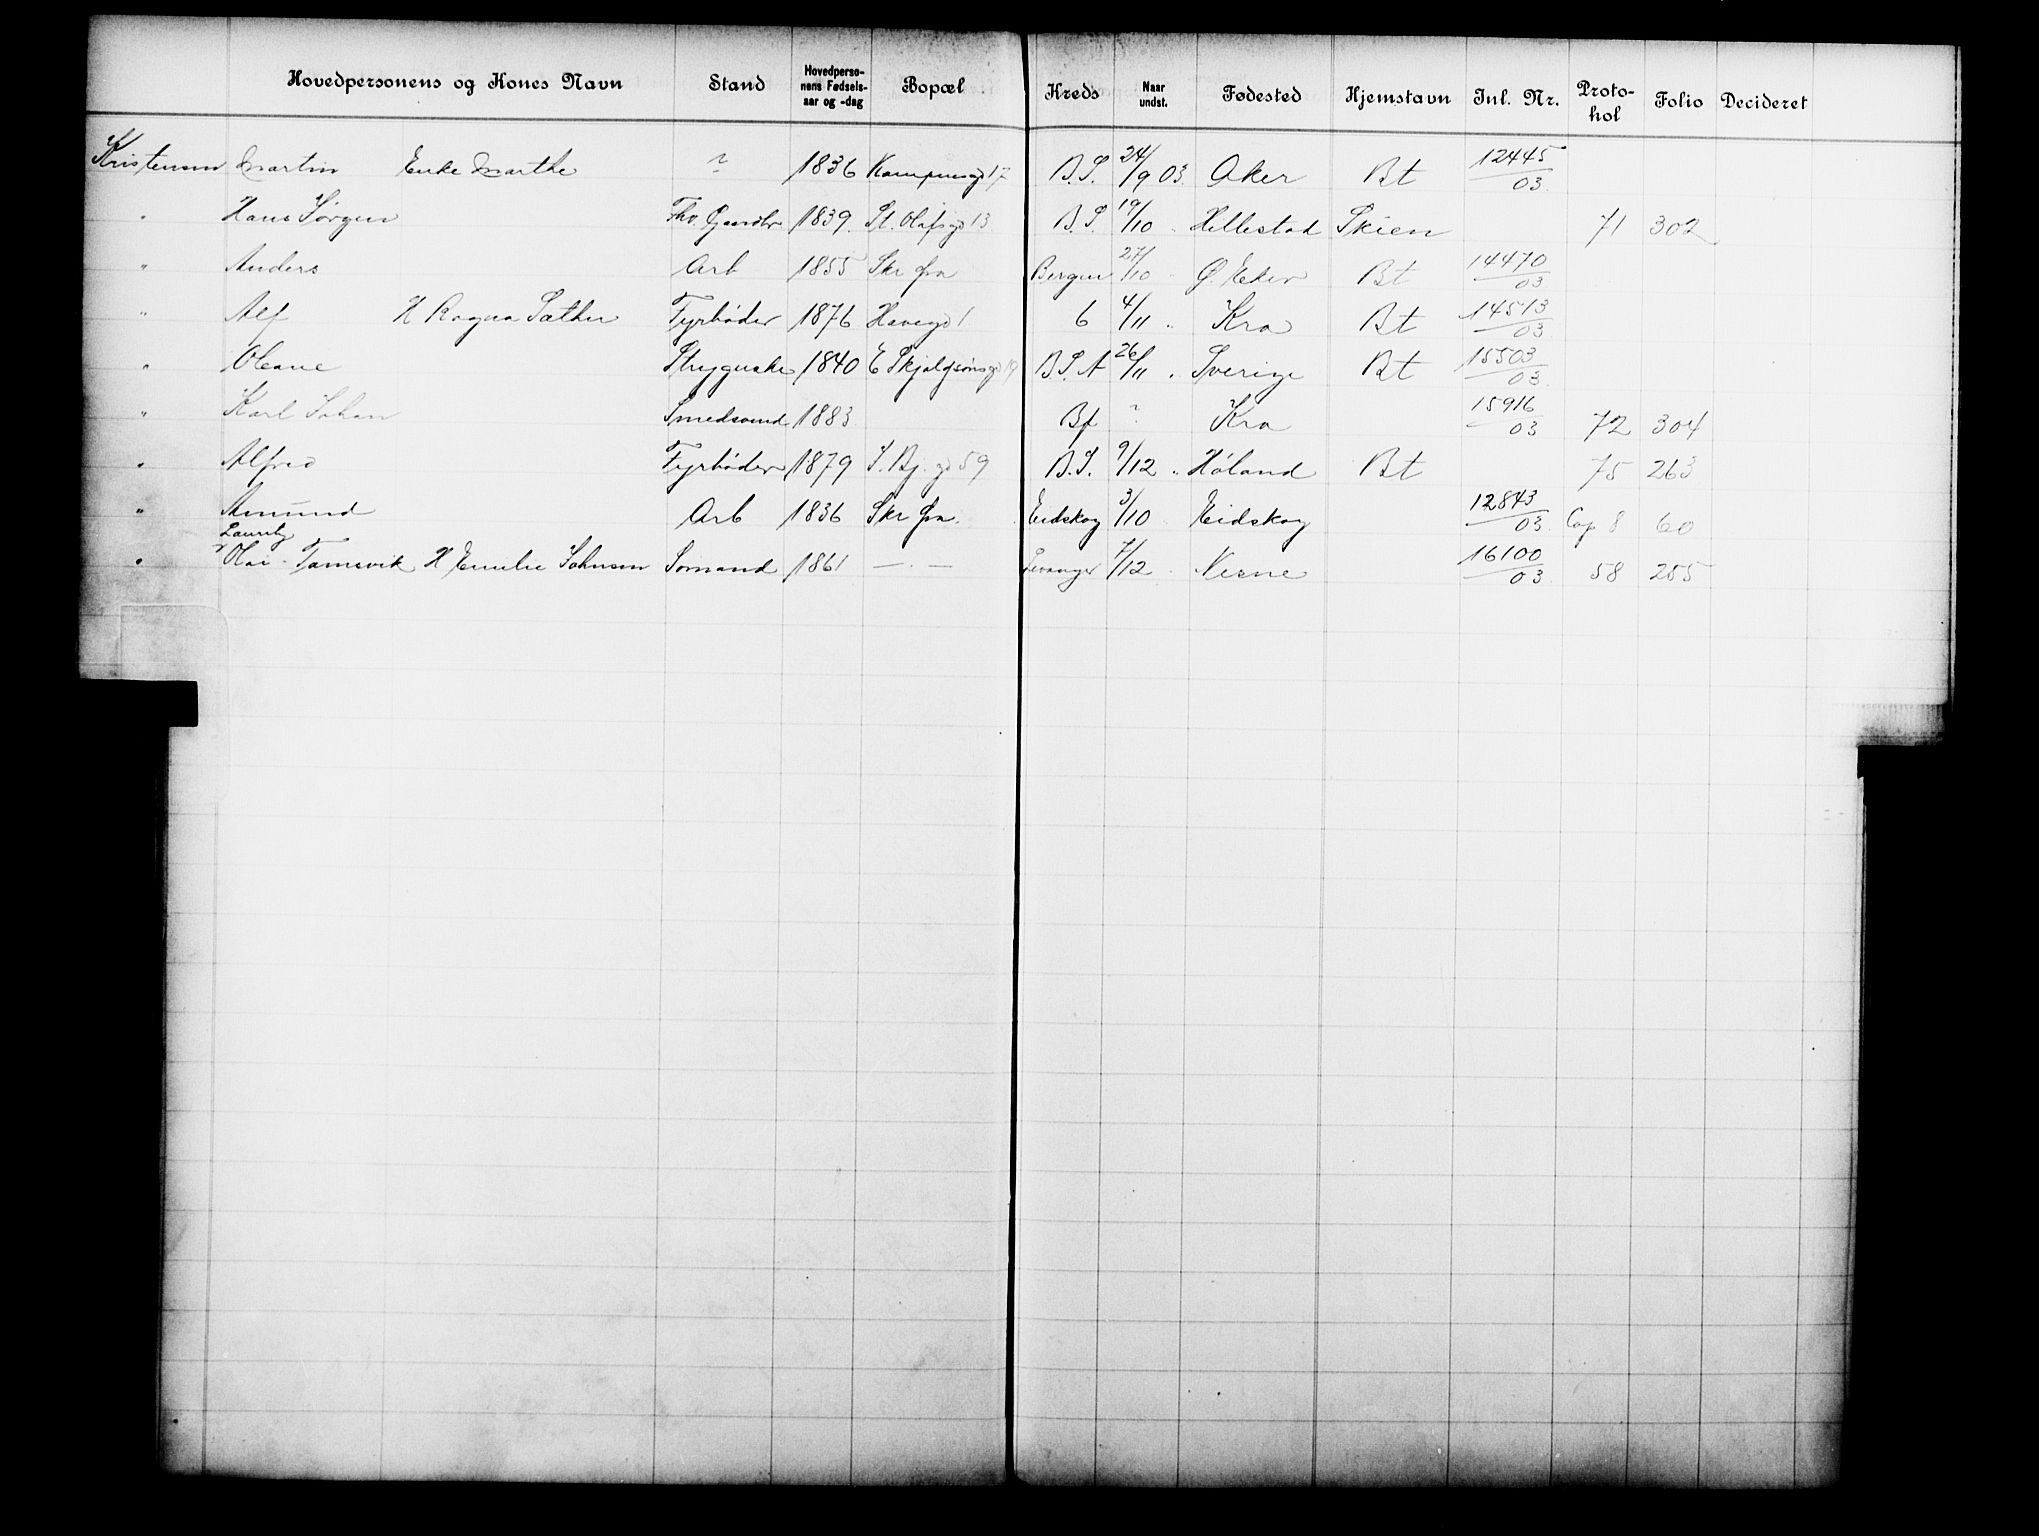 Hovedpersonens og Kones Navn Stand Hovedperso-nens Fødsels-aar og -dag Bopæl Kreds Naar undst. Fødested Hjemstavn Inl. Nr. Proto-kol Folio Decideret
Kristensen Martin Enke Marthe ? 1836 Kampensgd 17 B.S. 24/9 03 Aker Bt 12445/03
" Hans Jørgen 1839 St. Olafsgd 13 B.S. 19/10 Hillestad Skien 71 302
" Anders Arb 1855 Skr fra Bergen 27/10 Ø. Eker Bt 14470/03
" Alf H Ragna Sæther Fyrbøder 1876 Havegd 1 6 4/11 " Kra Bt 14513/03
" Oleane Strygerske 1840 E Skjalgsønsgd 19 B.S.A 26/11 " Sverige Bt 15503/03
" Karl Johan Smedsvend 1883 Bf ? Kra 15916/03 72 304
" Alfred Fyrbøder 1879 T. Bj. gd 59 B.S. 9/12 " Høland Bt 75 263
" Amund Arb 1836 Skr fra Eidskog 3/10 Eidskog 12843/03 Cop 8 60
Lauritz
" Olai Tamsvik H Emilie Johnsen Sømand 1861 — . — Levanger 7/12 Nesne 16100/03 58 255